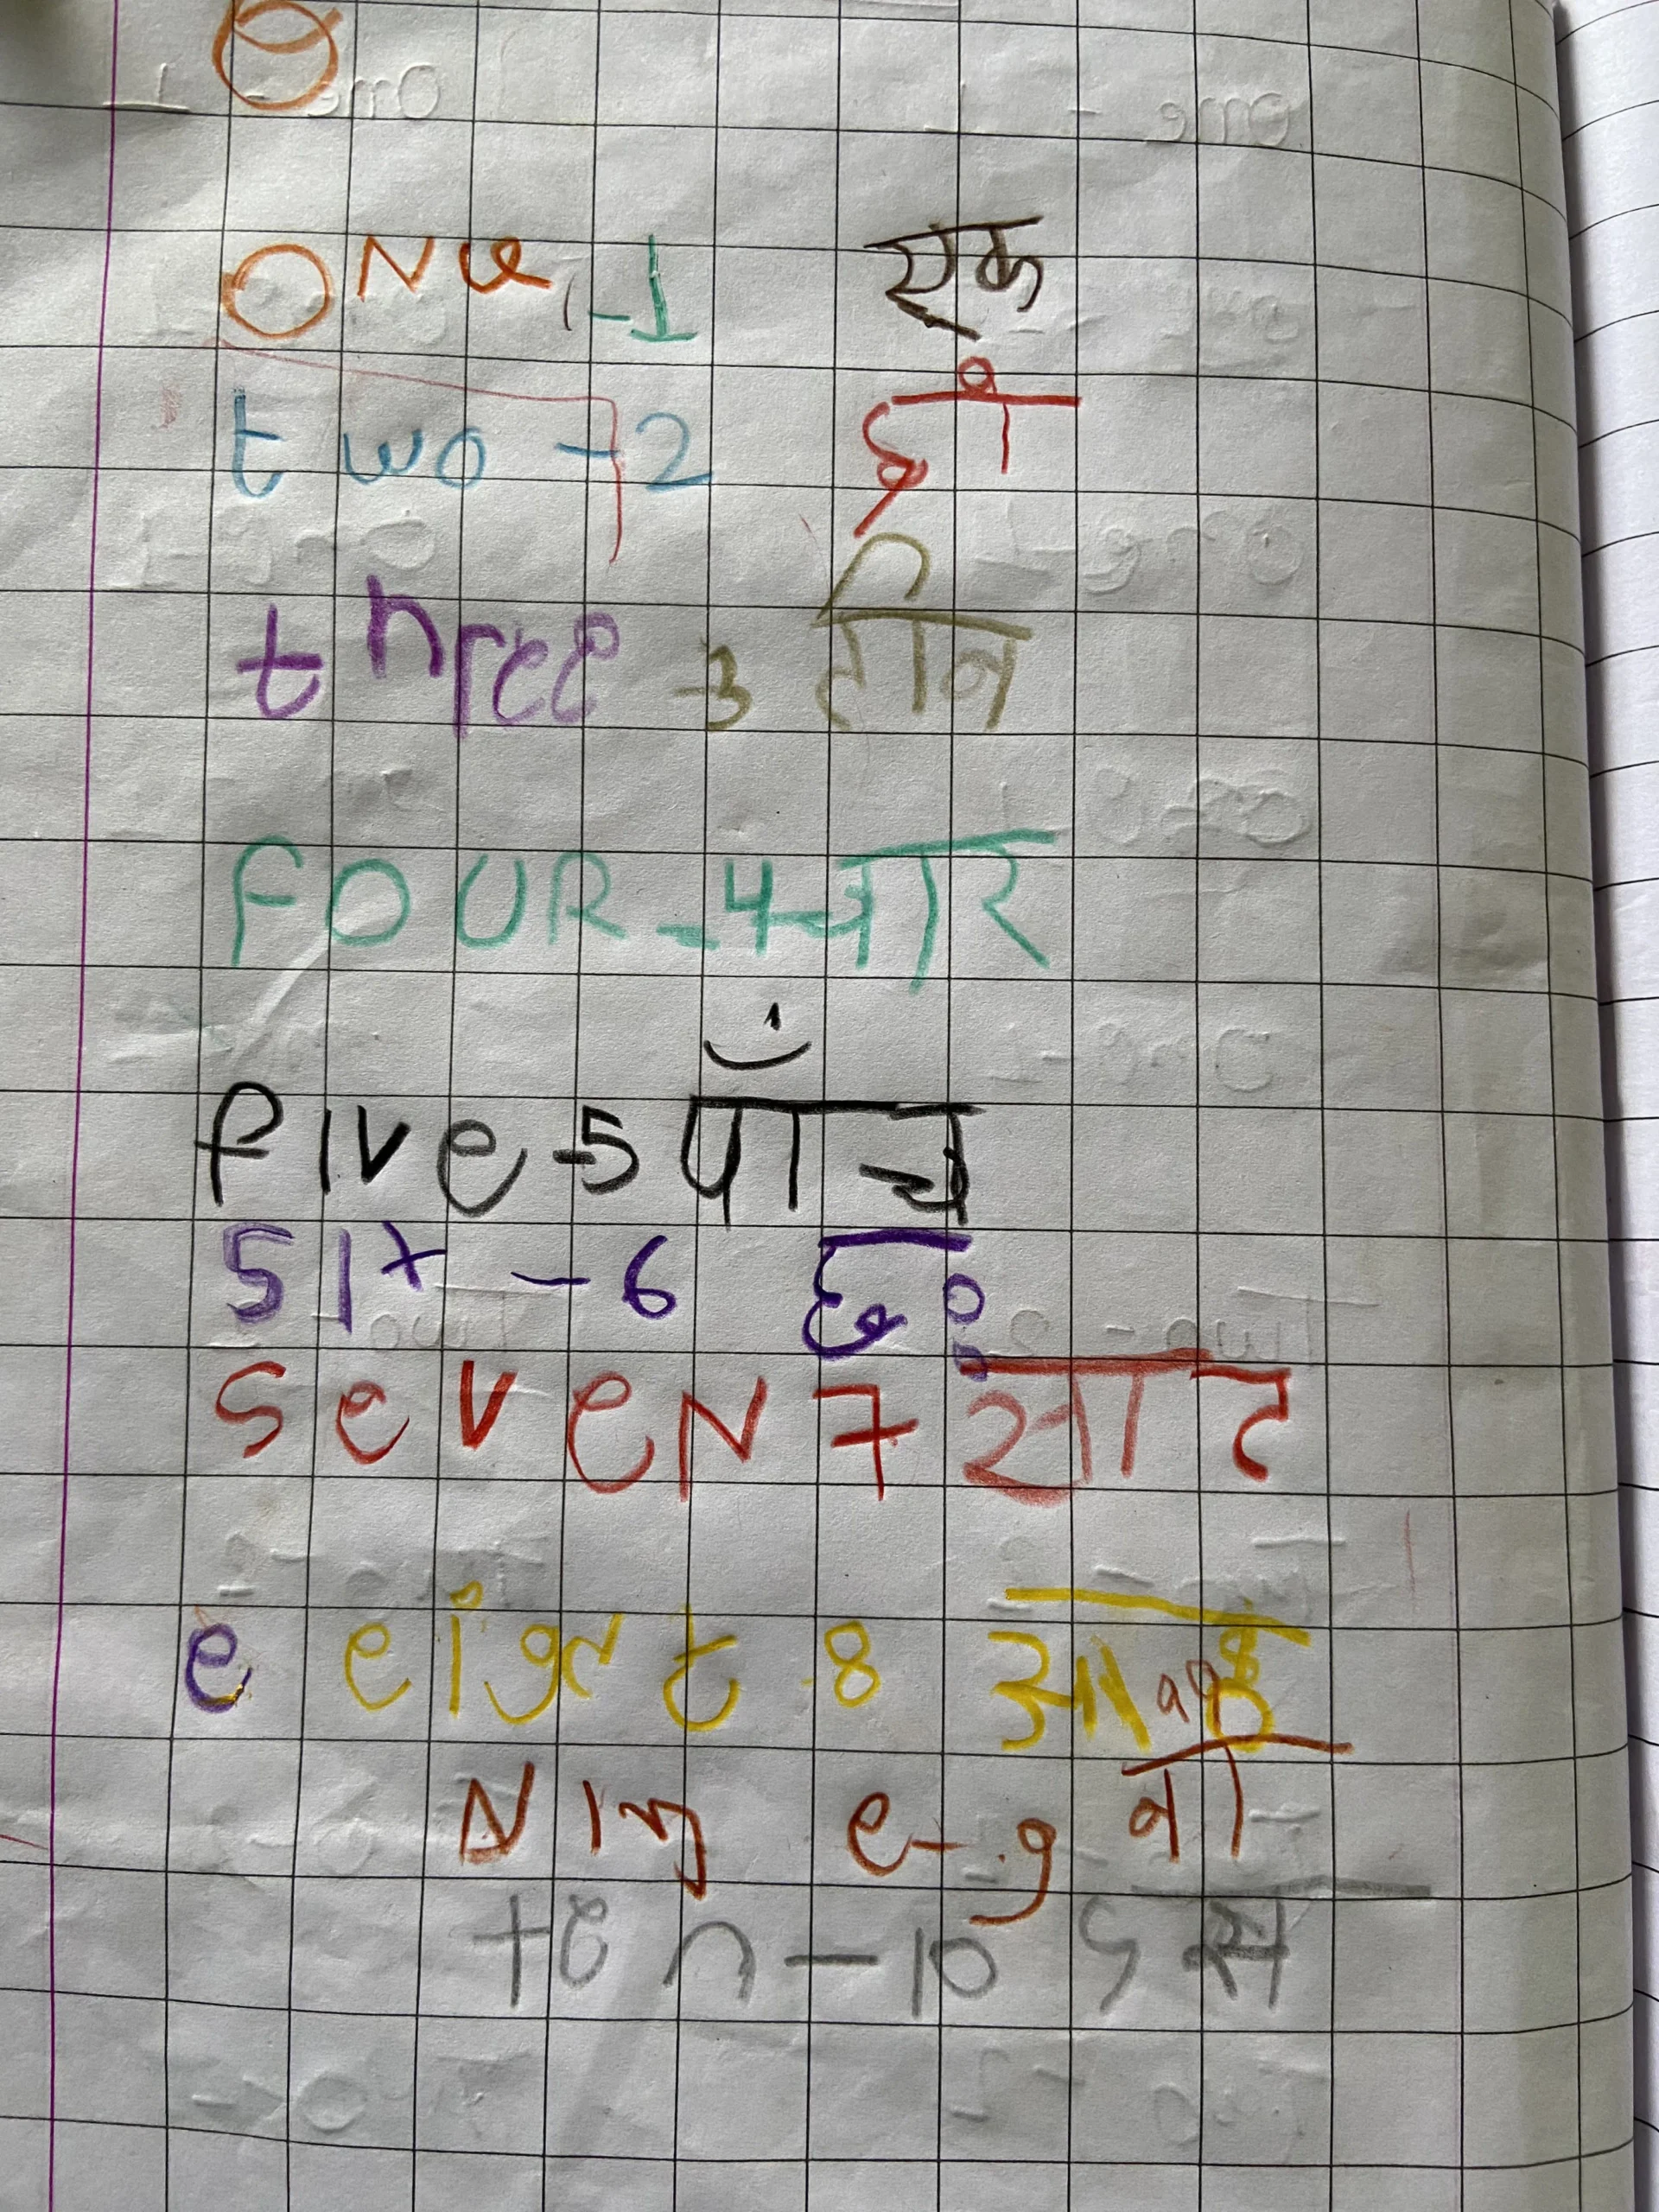 ONe -1 एक
two - 2 दो
three -3 तीन
FOUR - 4 चार
five - 5 पाँच
six - 6 छः
seveN 7 सात
e eight 8 आठ
Nine - 9 नौ
ten - 10 दस